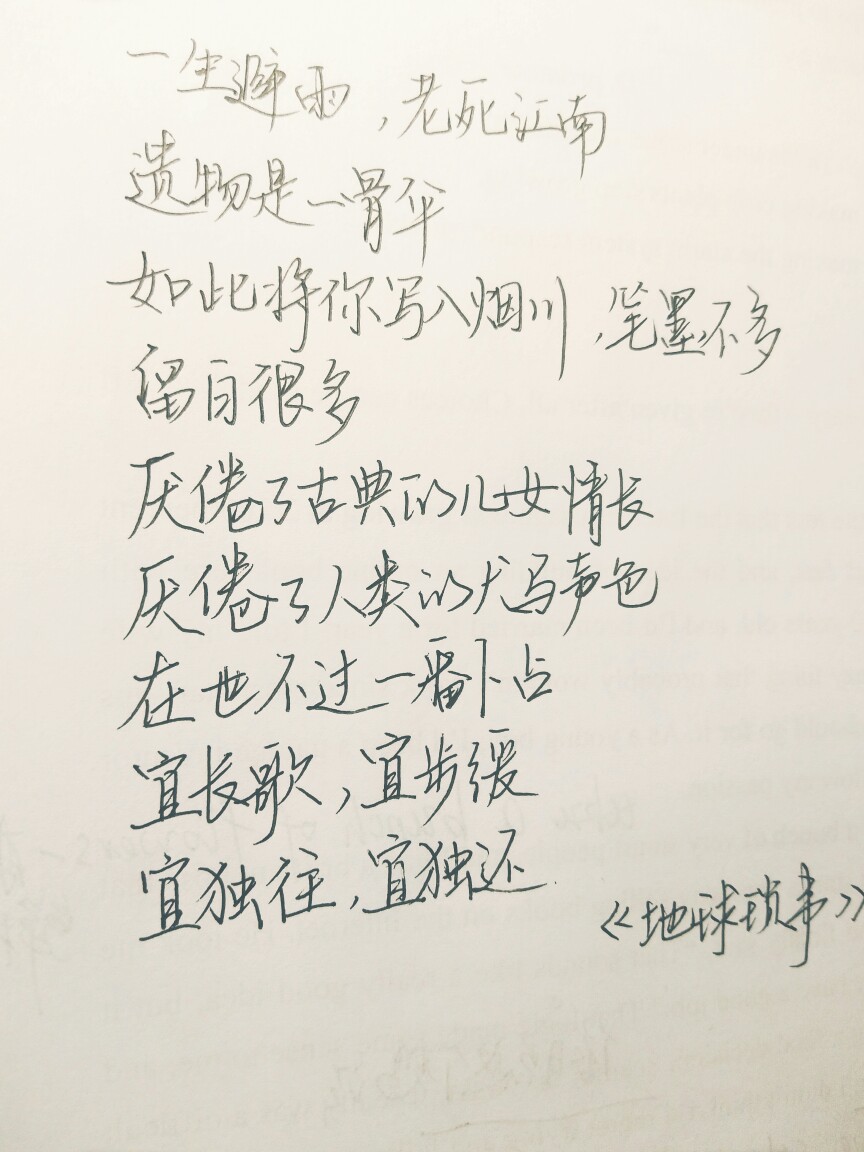 一生避雨，老死江南
遗物是一骨伞
如此将你写入烟川，笔墨不多
留白很多
厌倦了古典的儿女情长
厌倦了人类的犬马声色
在世不过一番卜占
宜长歌，宜步缓
宜独往，宜独还
《地球琐事》